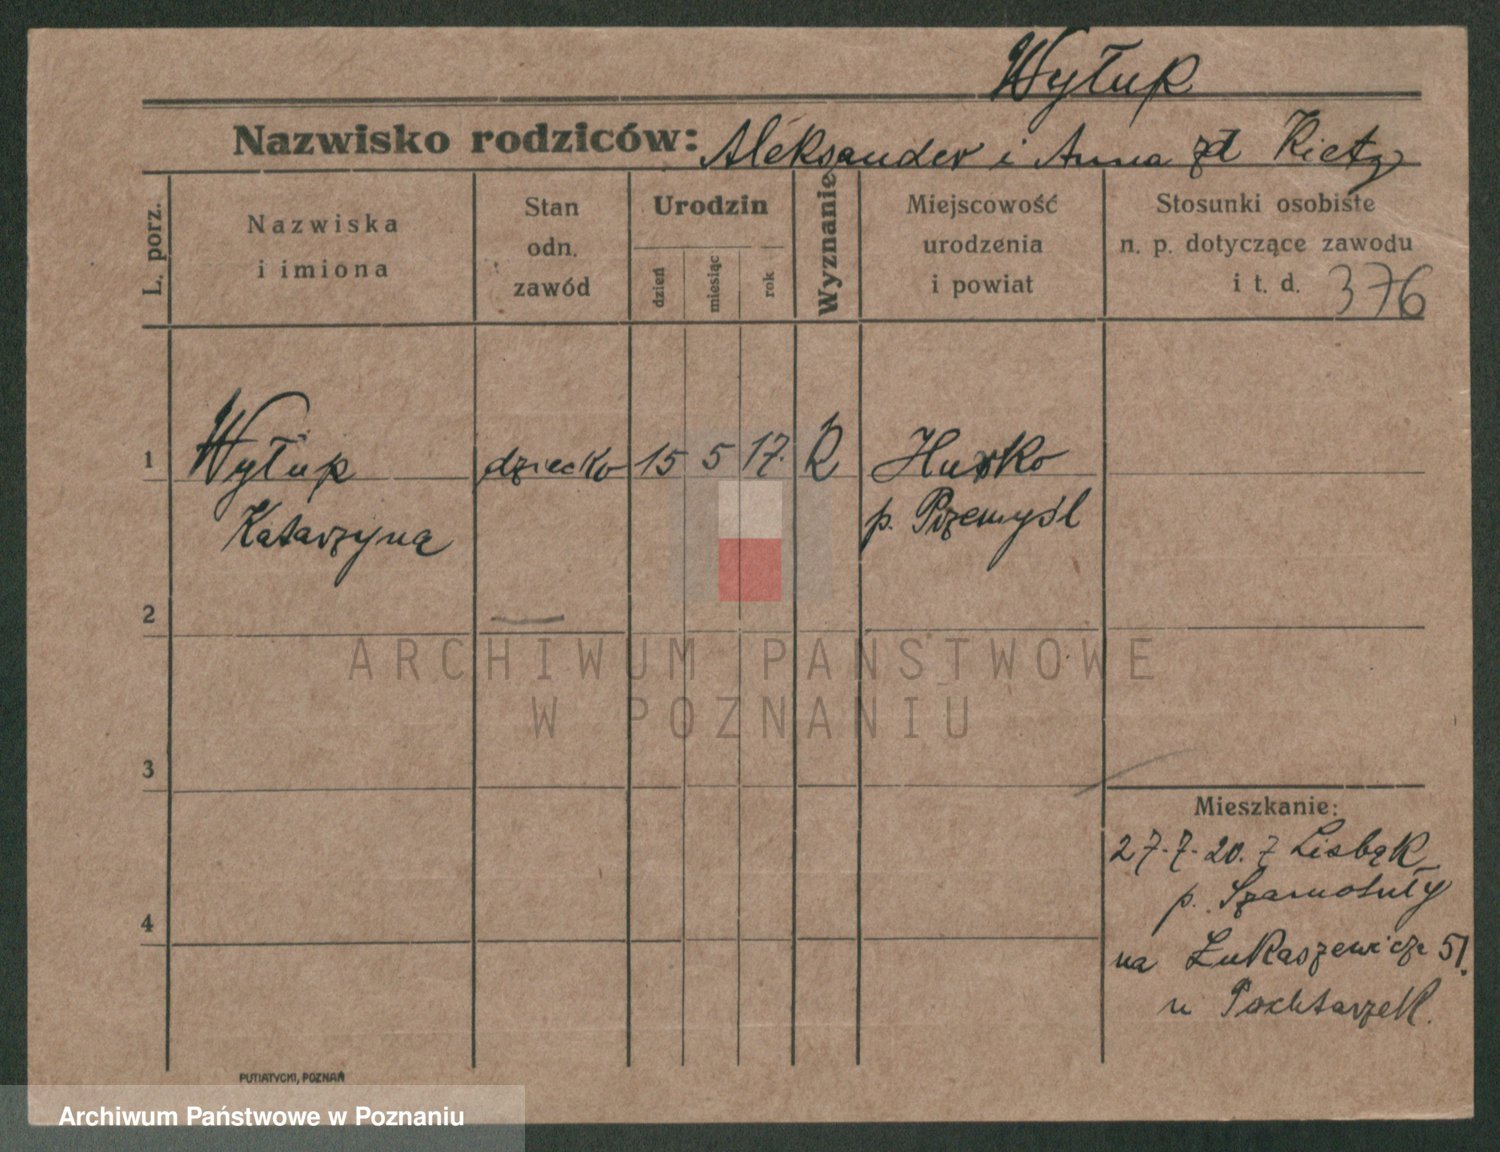 Wyłup
Nazwisko rodziców: Aleksander i Anna zd Kietz
L. porz.
Nazwiska
i imiona
Stan
odn.
zawód
Urodzin
dzień
miesiąc
rok
Wyznanie
Miejscowość
urodzenia
i powiat
Stosunki osobiste
n. p. dotyczące zawodu
i t. d. 376
1 Wyłup dziecko 15 5 17. R Hurko
Katarzyna p. Przemyśl
2
ARCHIWUM PAŃSTWOWE
W POZNANIU
3
Mieszkanie:
27.7.20. z Lisbąk
p. Szamotuły
4
na Łukaszewicza 51.
u Pochtarzek.
PUTIATYCKI, POZNAŃ
Archiwum Państwowe w Poznaniu